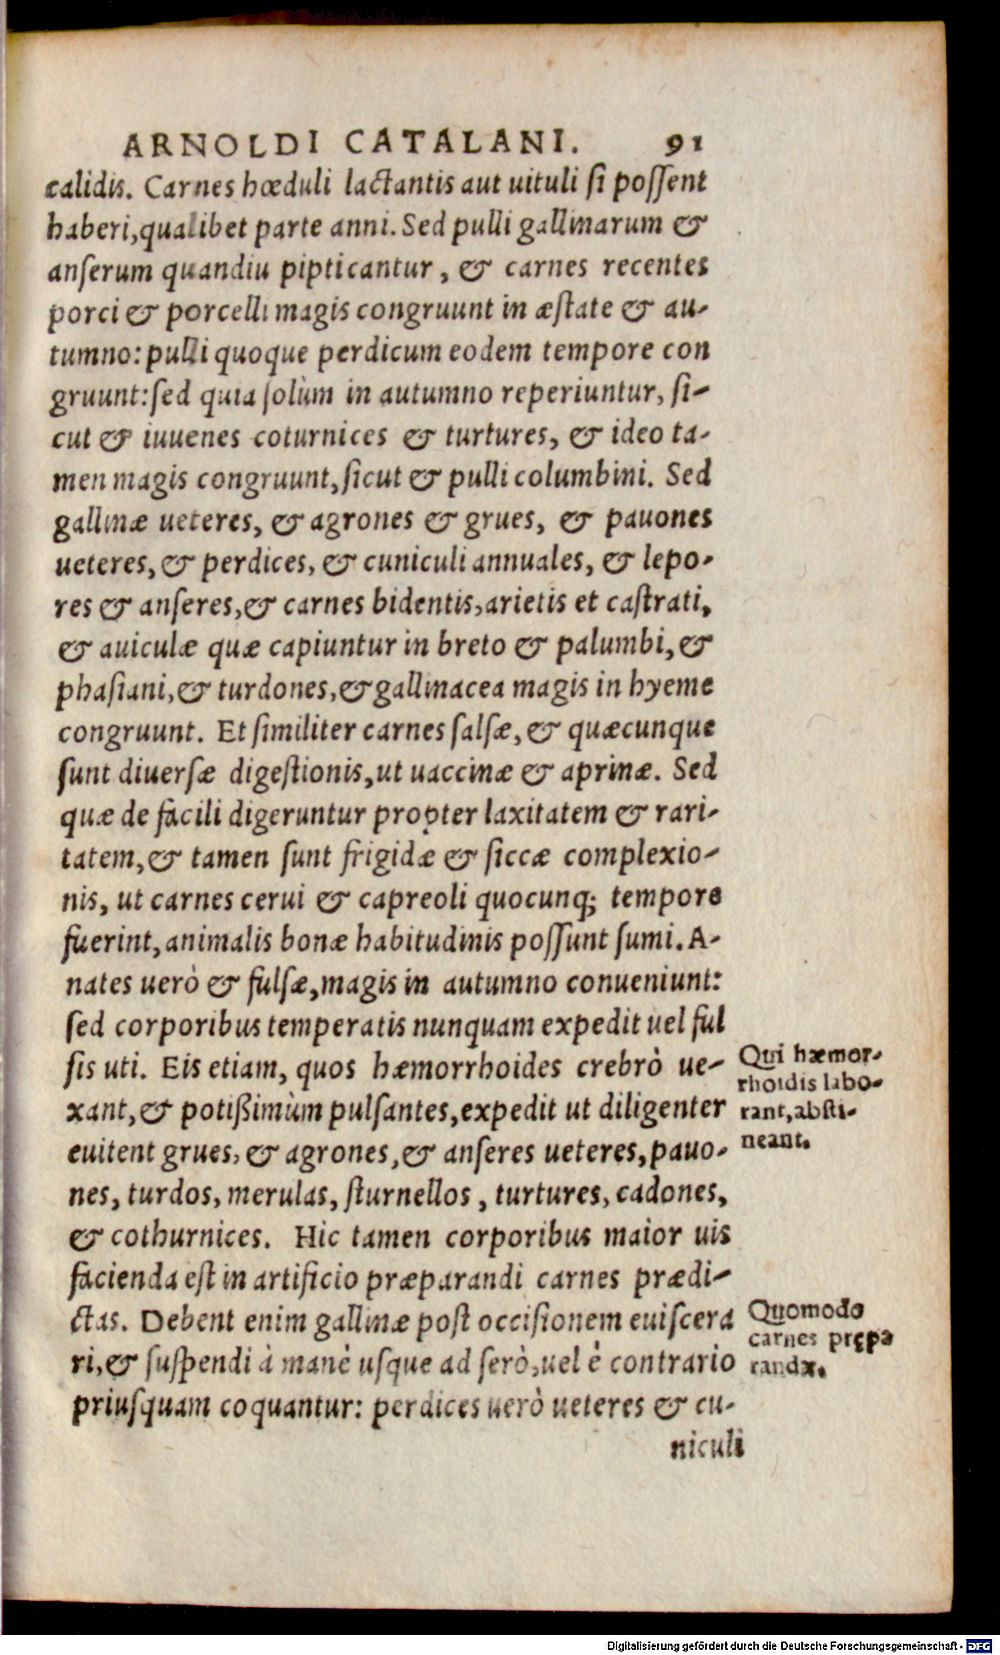 ARNOLDI CATALANI. 91
calidis. Carnes hœduli lactantis aut uituli si possent
haberi, qualibet parte anni. Sed pulli gallinarum &
anserum quandiu pipticantur, & carnes recentes
porci & porcelli magis congruunt in æstate & au-
tumno: pulli quoque perdicum eodem tempore con
gruunt: sed quia solùm in autumno reperiuntur, si-
cut & iuuenes coturnices & turtures, & ideo ta-
men magis congruunt, sicut & pulli columbini. Sed
gallinæ ueteres, & agrones & grues, & pauones
ueteres, & perdices, & cuniculi annuales, & lepo-
res & anseres, & carnes bidentis, arietis et castrati,
& auiculæ quæ capiuntur in breto & palumbi, &
phasiani, & turdones, & gallinacea magis in hyeme
congruunt. Et similiter carnes salsæ, & quæcunque
sunt diuersæ digestionis, ut uaccinæ & aprinæ. Sed
quæ de facili digeruntur propter laxitatem & rari-
tatem, & tamen sunt frigidæ & siccæ complexio-
nis, ut carnes cerui & capreoli quocunq; tempore
fuerint, animalis bonæ habitudinis possunt sumi. A-
nates uerò & fulsæ, magis in autumno conueniunt:
sed corporibus temperatis nunquam expedit uel ful
sis uti. Eis etiam, quos hæmorrhoides crebrò ue-
xant, & potißimùm pulsantes, expedit ut diligenter
euitent grues, & agrones, & anseres ueteres, pauo-
nes, turdos, merulas, sturnellos, turtures, cadones,
& cothurnices. Hic tamen corporibus maior uis
facienda est in artificio præparandi carnes prædi-
ctas. Debent enim gallinæ post occisionem euiscera
ri, & suspendi à manè usque ad serò, uel è contrario
priusquam coquantur: perdices uerò ueteres & cu-
niculi
Qui hæmor-
rhoidis labo-
rant, absti-
neant.
Quomodo
carnes prępa
randæ.
Digitalisierung gefördert durch die Deutsche Forschungsgemeinschaft - DFG